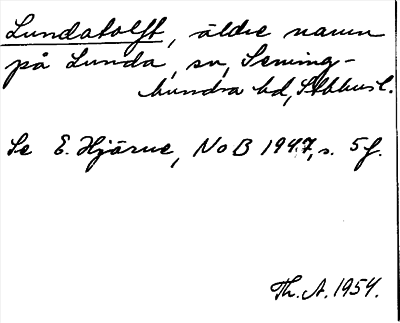 Lundatolft, äldre namn
på Lunda, sn, Seming-
hundra hd, Sthlms l.
Se E. Hjärne, NoB 1947, s. 5 f.
Th. A. 1954.